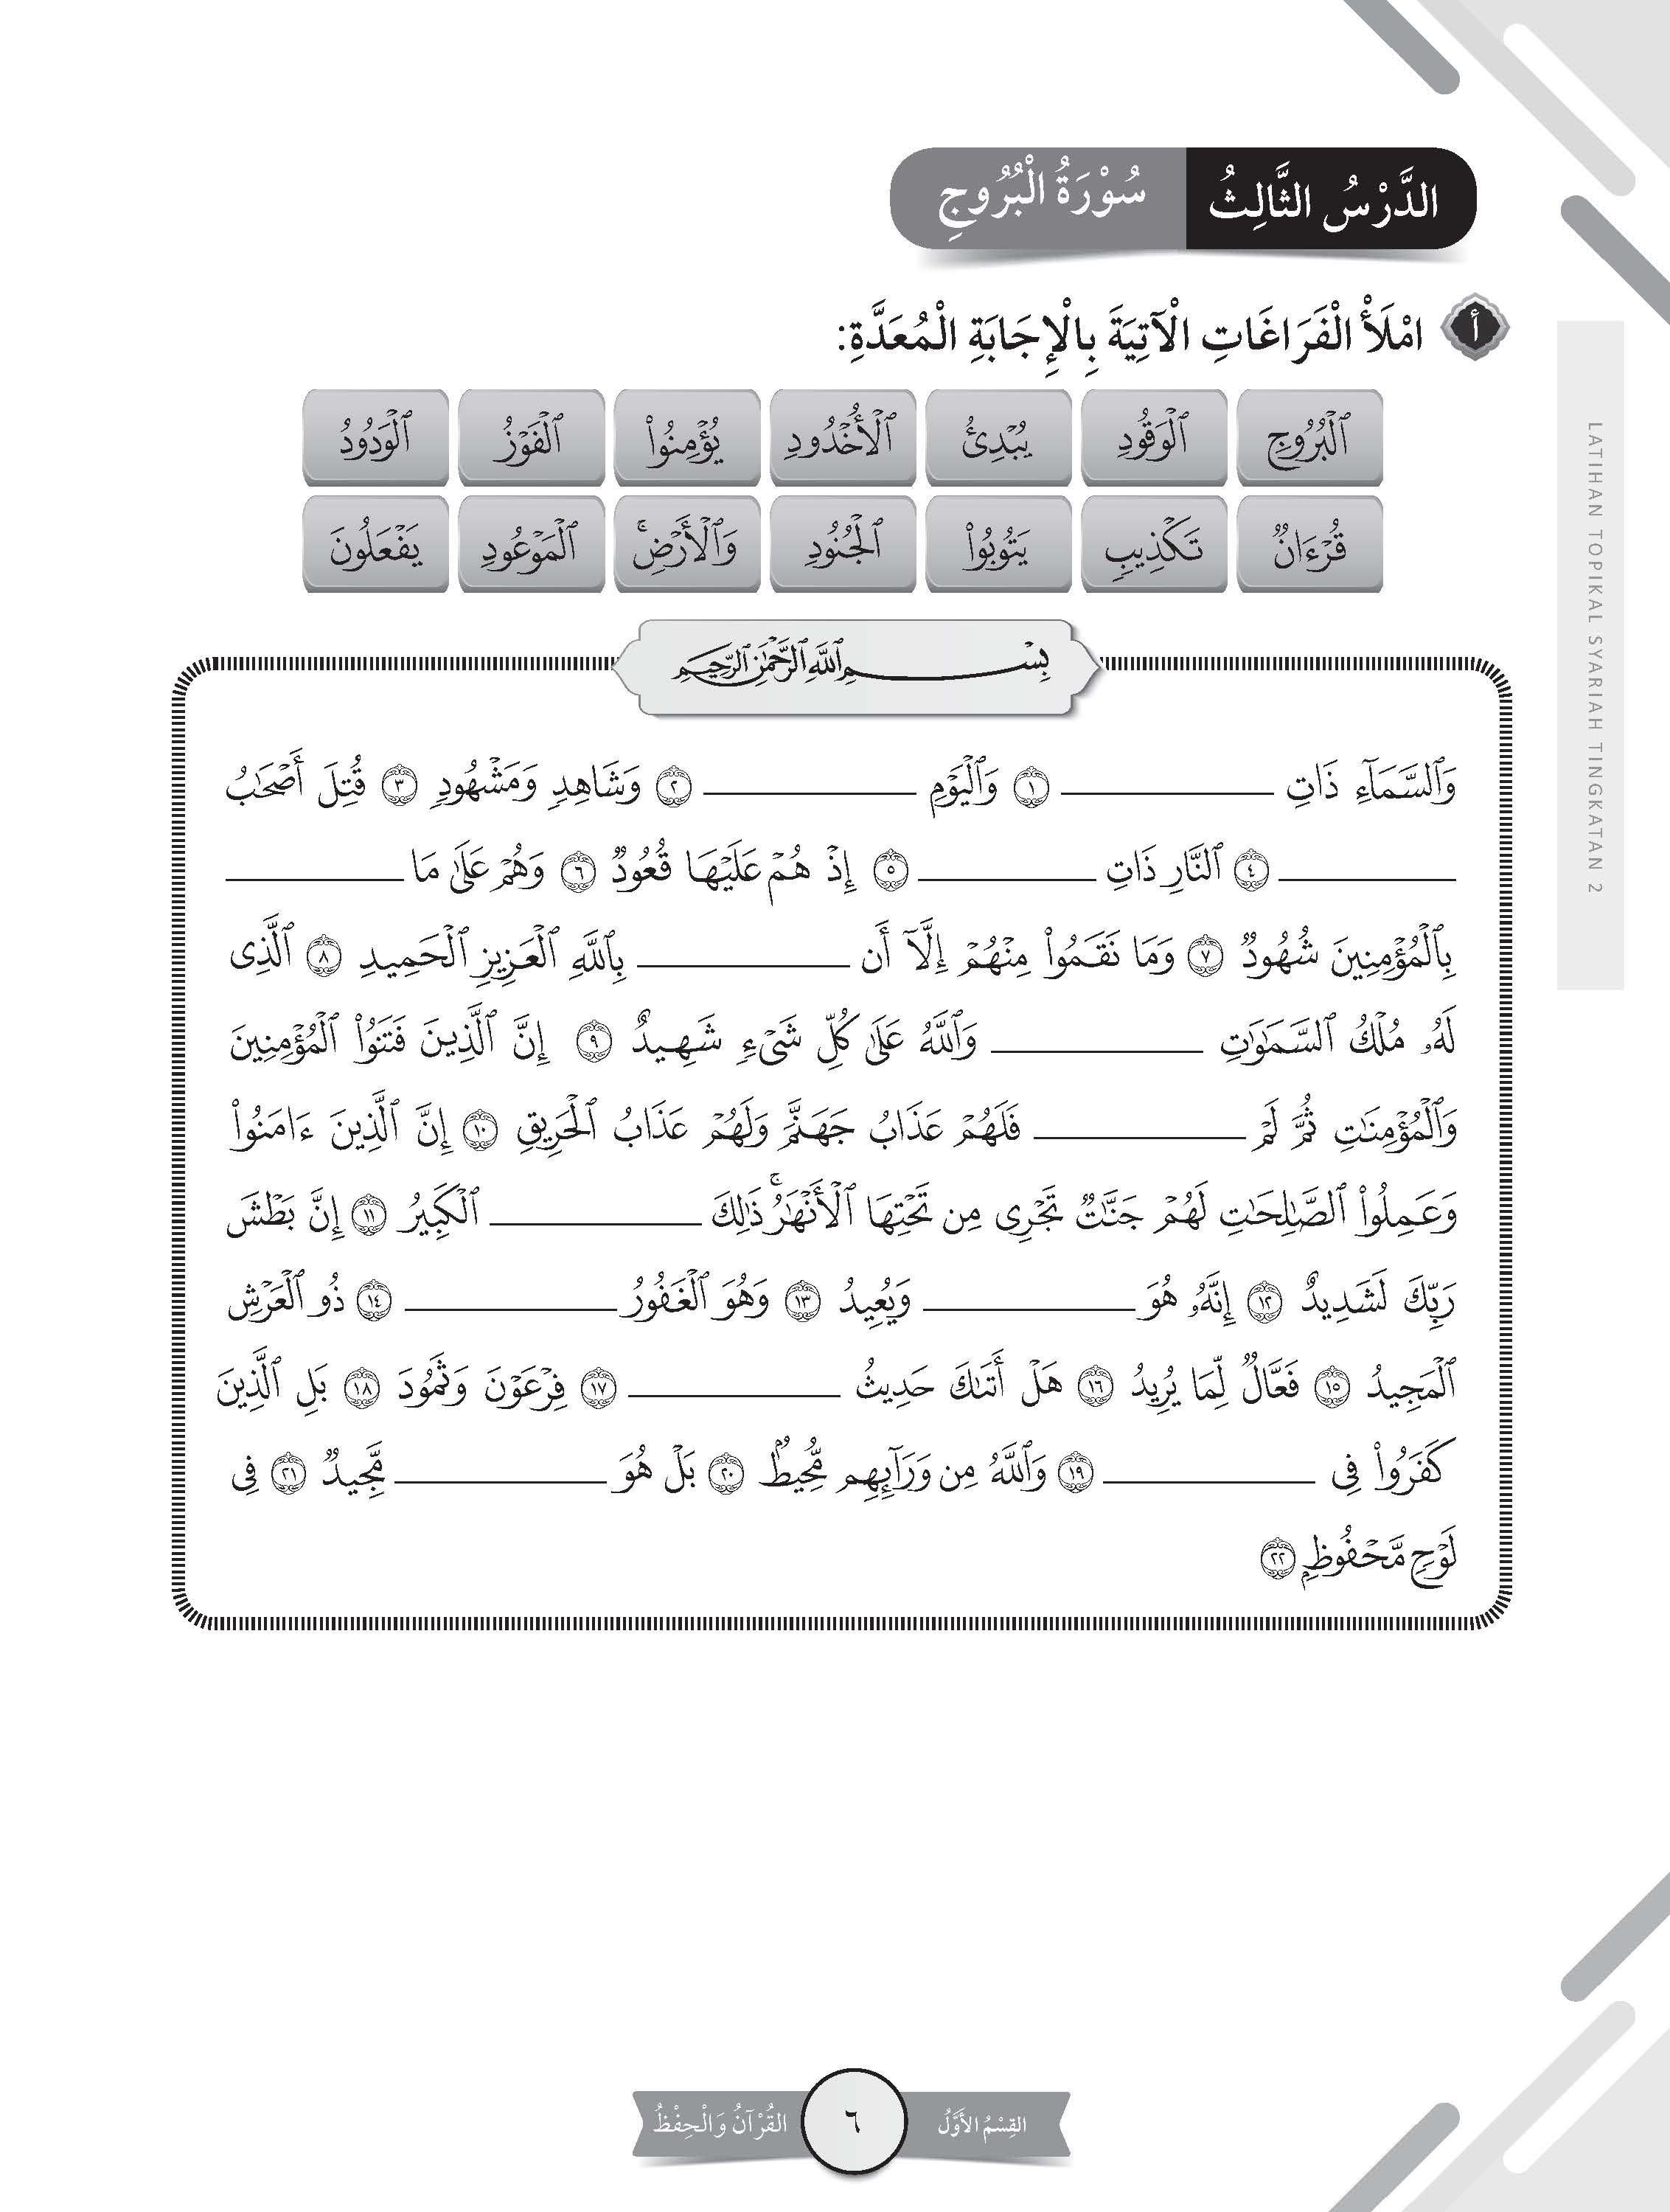 الدَّرْسُ الثَّالِثُ سُوْرَةُ الْبُرُوجِ
أ امْلَأْ الْفَرَاغَاتِ الْآتِيَةَ بِالْإِجَابَةِ الْمُعَدَّةِ:
ٱلْبُرُوجِ ٱلْوَقُودِ يُبْدِئُ ٱلْأُخْدُودِ يُؤْمِنُوا۟ ٱلْفَوْزُ ٱلْوَدُودُ
قُرْءَانٌ تَكْذِيبٍ يَتُوبُوا۟ ٱلْجُنُودِ وَٱلْأَرْضِ ۚ ٱلْمَوْعُودِ يَفْعَلُونَ
بِسْمِ ٱللَّهِ ٱلرَّحْمَٰنِ ٱلرَّحِيمِ
وَٱلسَّمَآءِ ذَاتِ ____________ ١ وَٱلْيَوْمِ ____________ ٢ وَشَاهِدٍ وَمَشْهُودٍ ٣ قُتِلَ أَصْحَٰبُ
____________ ٤ ٱلنَّارِ ذَاتِ ____________ ٥ إِذْ هُمْ عَلَيْهَا قُعُودٌ ٦ وَهُمْ عَلَىٰ مَا ____________
بِٱلْمُؤْمِنِينَ شُهُودٌ ٧ وَمَا نَقَمُوا۟ مِنْهُمْ إِلَّآ أَن ____________ بِٱللَّهِ ٱلْعَزِيزِ ٱلْحَمِيدِ ٨ ٱلَّذِى
لَهُۥ مُلْكُ ٱلسَّمَٰوَٰتِ ____________ وَٱللَّهُ عَلَىٰ كُلِّ شَىْءٍ شَهِيدٌ ٩ إِنَّ ٱلَّذِينَ فَتَنُوا۟ ٱلْمُؤْمِنِينَ
وَٱلْمُؤْمِنَٰتِ ثُمَّ لَمْ ____________ فَلَهُمْ عَذَابُ جَهَنَّمَ وَلَهُمْ عَذَابُ ٱلْحَرِيقِ ١٠ إِنَّ ٱلَّذِينَ ءَامَنُوا۟
وَعَمِلُوا۟ ٱلصَّٰلِحَٰتِ لَهُمْ جَنَّٰتٌ تَجْرِى مِن تَحْتِهَا ٱلْأَنْهَٰرُ ۚ ذَٰلِكَ ____________ ٱلْكَبِيرُ ١١ إِنَّ بَطْشَ
رَبِّكَ لَشَدِيدٌ ١٢ إِنَّهُۥ هُوَ ____________ وَيُعِيدُ ١٣ وَهُوَ ٱلْغَفُورُ ____________ ١٤ ذُو ٱلْعَرْشِ
ٱلْمَجِيدُ ١٥ فَعَّالٌ لِّمَا يُرِيدُ ١٦ هَلْ أَتَىٰكَ حَدِيثُ ____________ ١٧ فِرْعَوْنَ وَثَمُودَ ١٨ بَلِ ٱلَّذِينَ
كَفَرُوا۟ فِى ____________ ١٩ وَٱللَّهُ مِن وَرَآئِهِم مُّحِيطٌۢ ٢٠ بَلْ هُوَ ____________ مَّجِيدٌ ٢١ فِى
لَوْحٍ مَّحْفُوظٍۭ ٢٢
LATIHAN TOPIKAL SYARIAH TINGKATAN 2
القِسْمُ الأَوَّلُ ٦ القُرْآنُ وَالْحِفْظُ